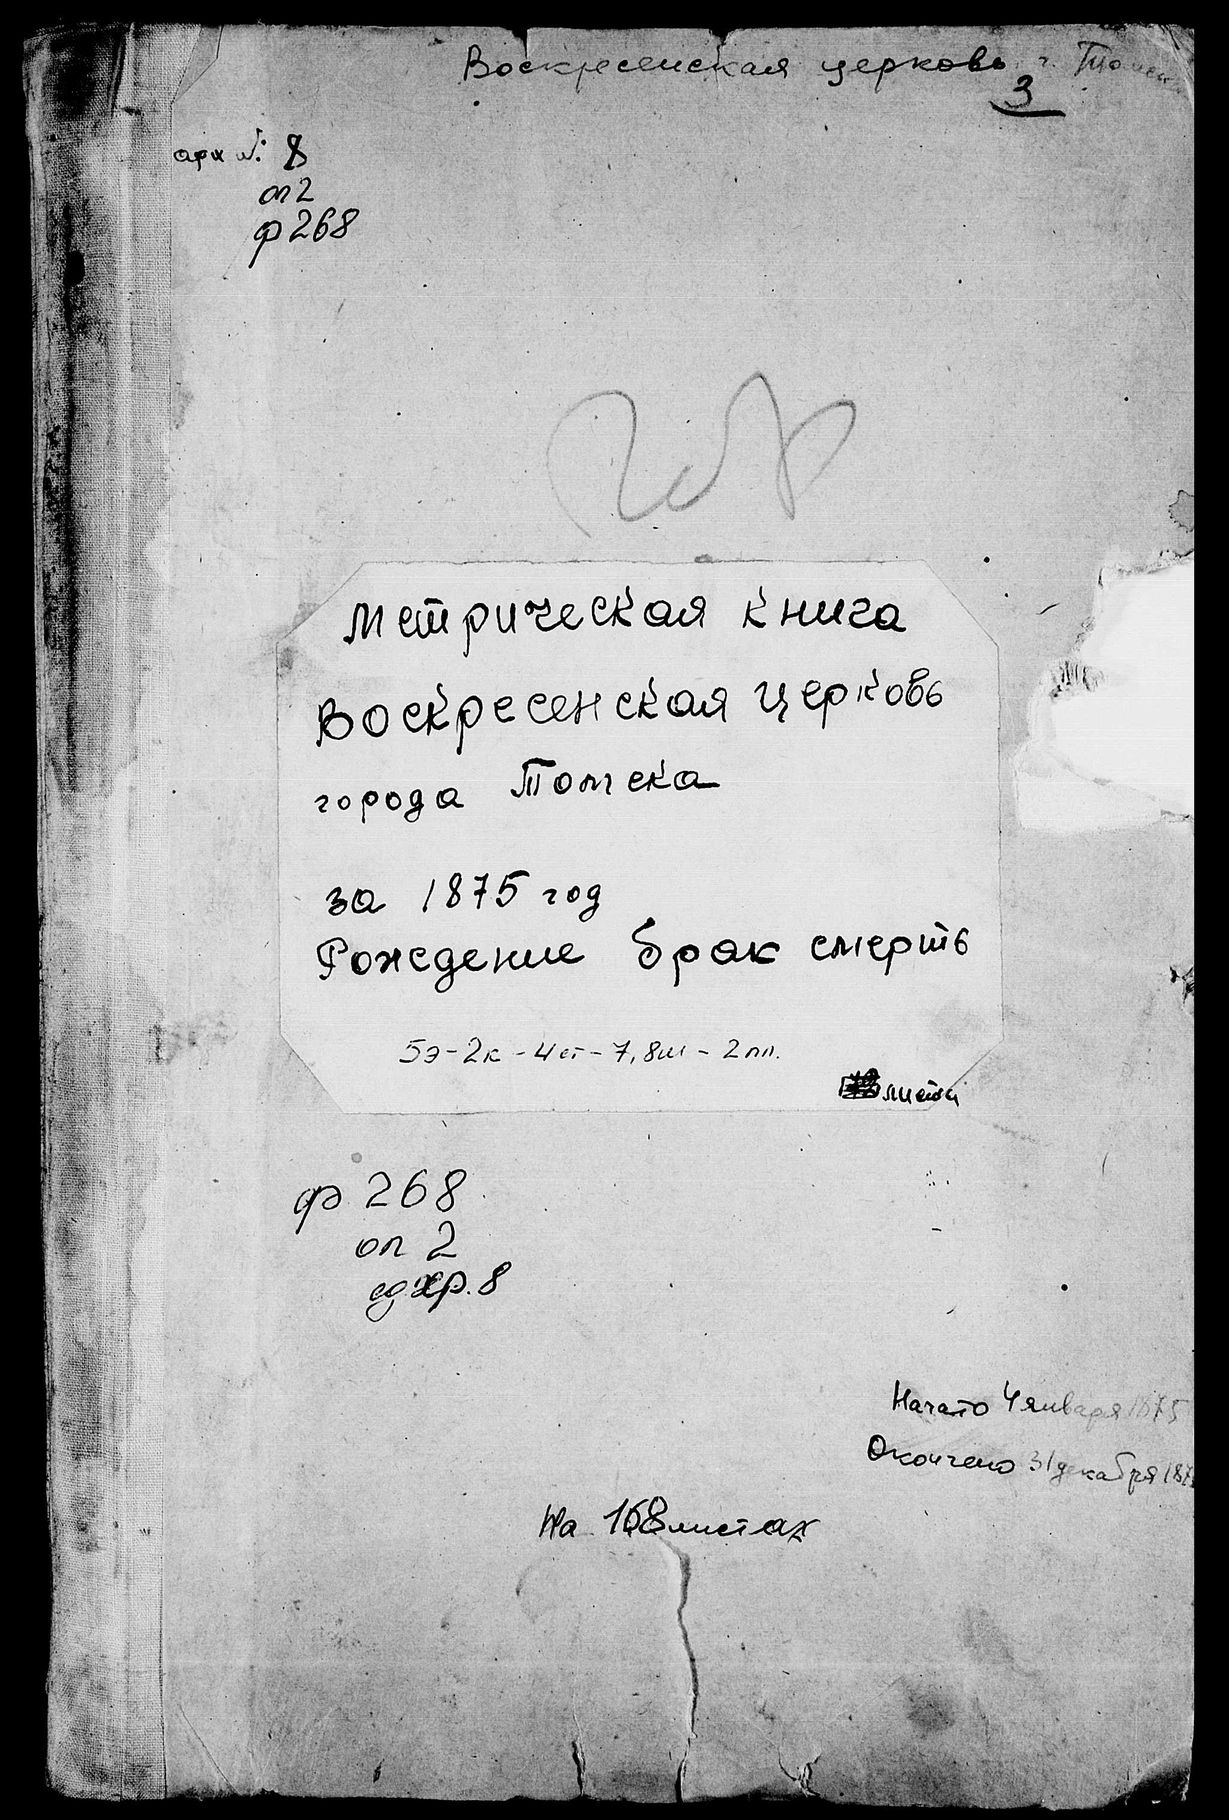 Воскресенская церковь г. Томск
3
арх №: 8
оп 2
ф 268
Метрическая книга
Воскресенская церковь
города Томска
за 1875 год
Рождение брак смерть
5э-2к-4ст-7,8ш-2пл.
листа
ф 268
оп 2
ед.хр. 8
Начато 4 января 1875
Окончено 31 декабря 187
На 168 листах